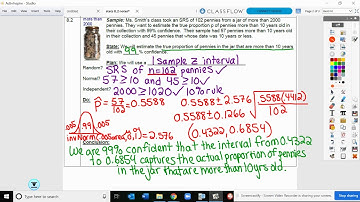 CLASSFLOW
8.2
more than 2000 pennies
Sample: Ms. Smith's class took an SRS of 102 pennies from a jar of more than 2000
pennies. They want to estimate the true proportion of pennies more than 10 years in
their collection with 99% confidence. Their sample had 57 pennies more than 10 years old in
their collection and 45 pennies that whose date was 10 years or less.
State: We will estimate the true proportion of pennies in the jar that are more than 10 years
old with 99% confidence.
Plan: We will use a 1 sample Z interval
Random? SRS of n=102 pennies
Normal? 57≥10 and 45≥10√
Independent? 2000≥1020√ 10% rule
Do: p̂ = 57/102 = 0.5588 0.5588±2.576 √.5588(.4412)/102
0.5588±0.1266
.005 .99 .005
invNorm(.005 area, 0, 1) = 2.576 (0.4322, 0.6854)
Conclusion:
We are 99% confident that the interval from 0.4322
to 0.6854 captures the actual proportion of pennies
in the jar that are more than 10 yrs old.